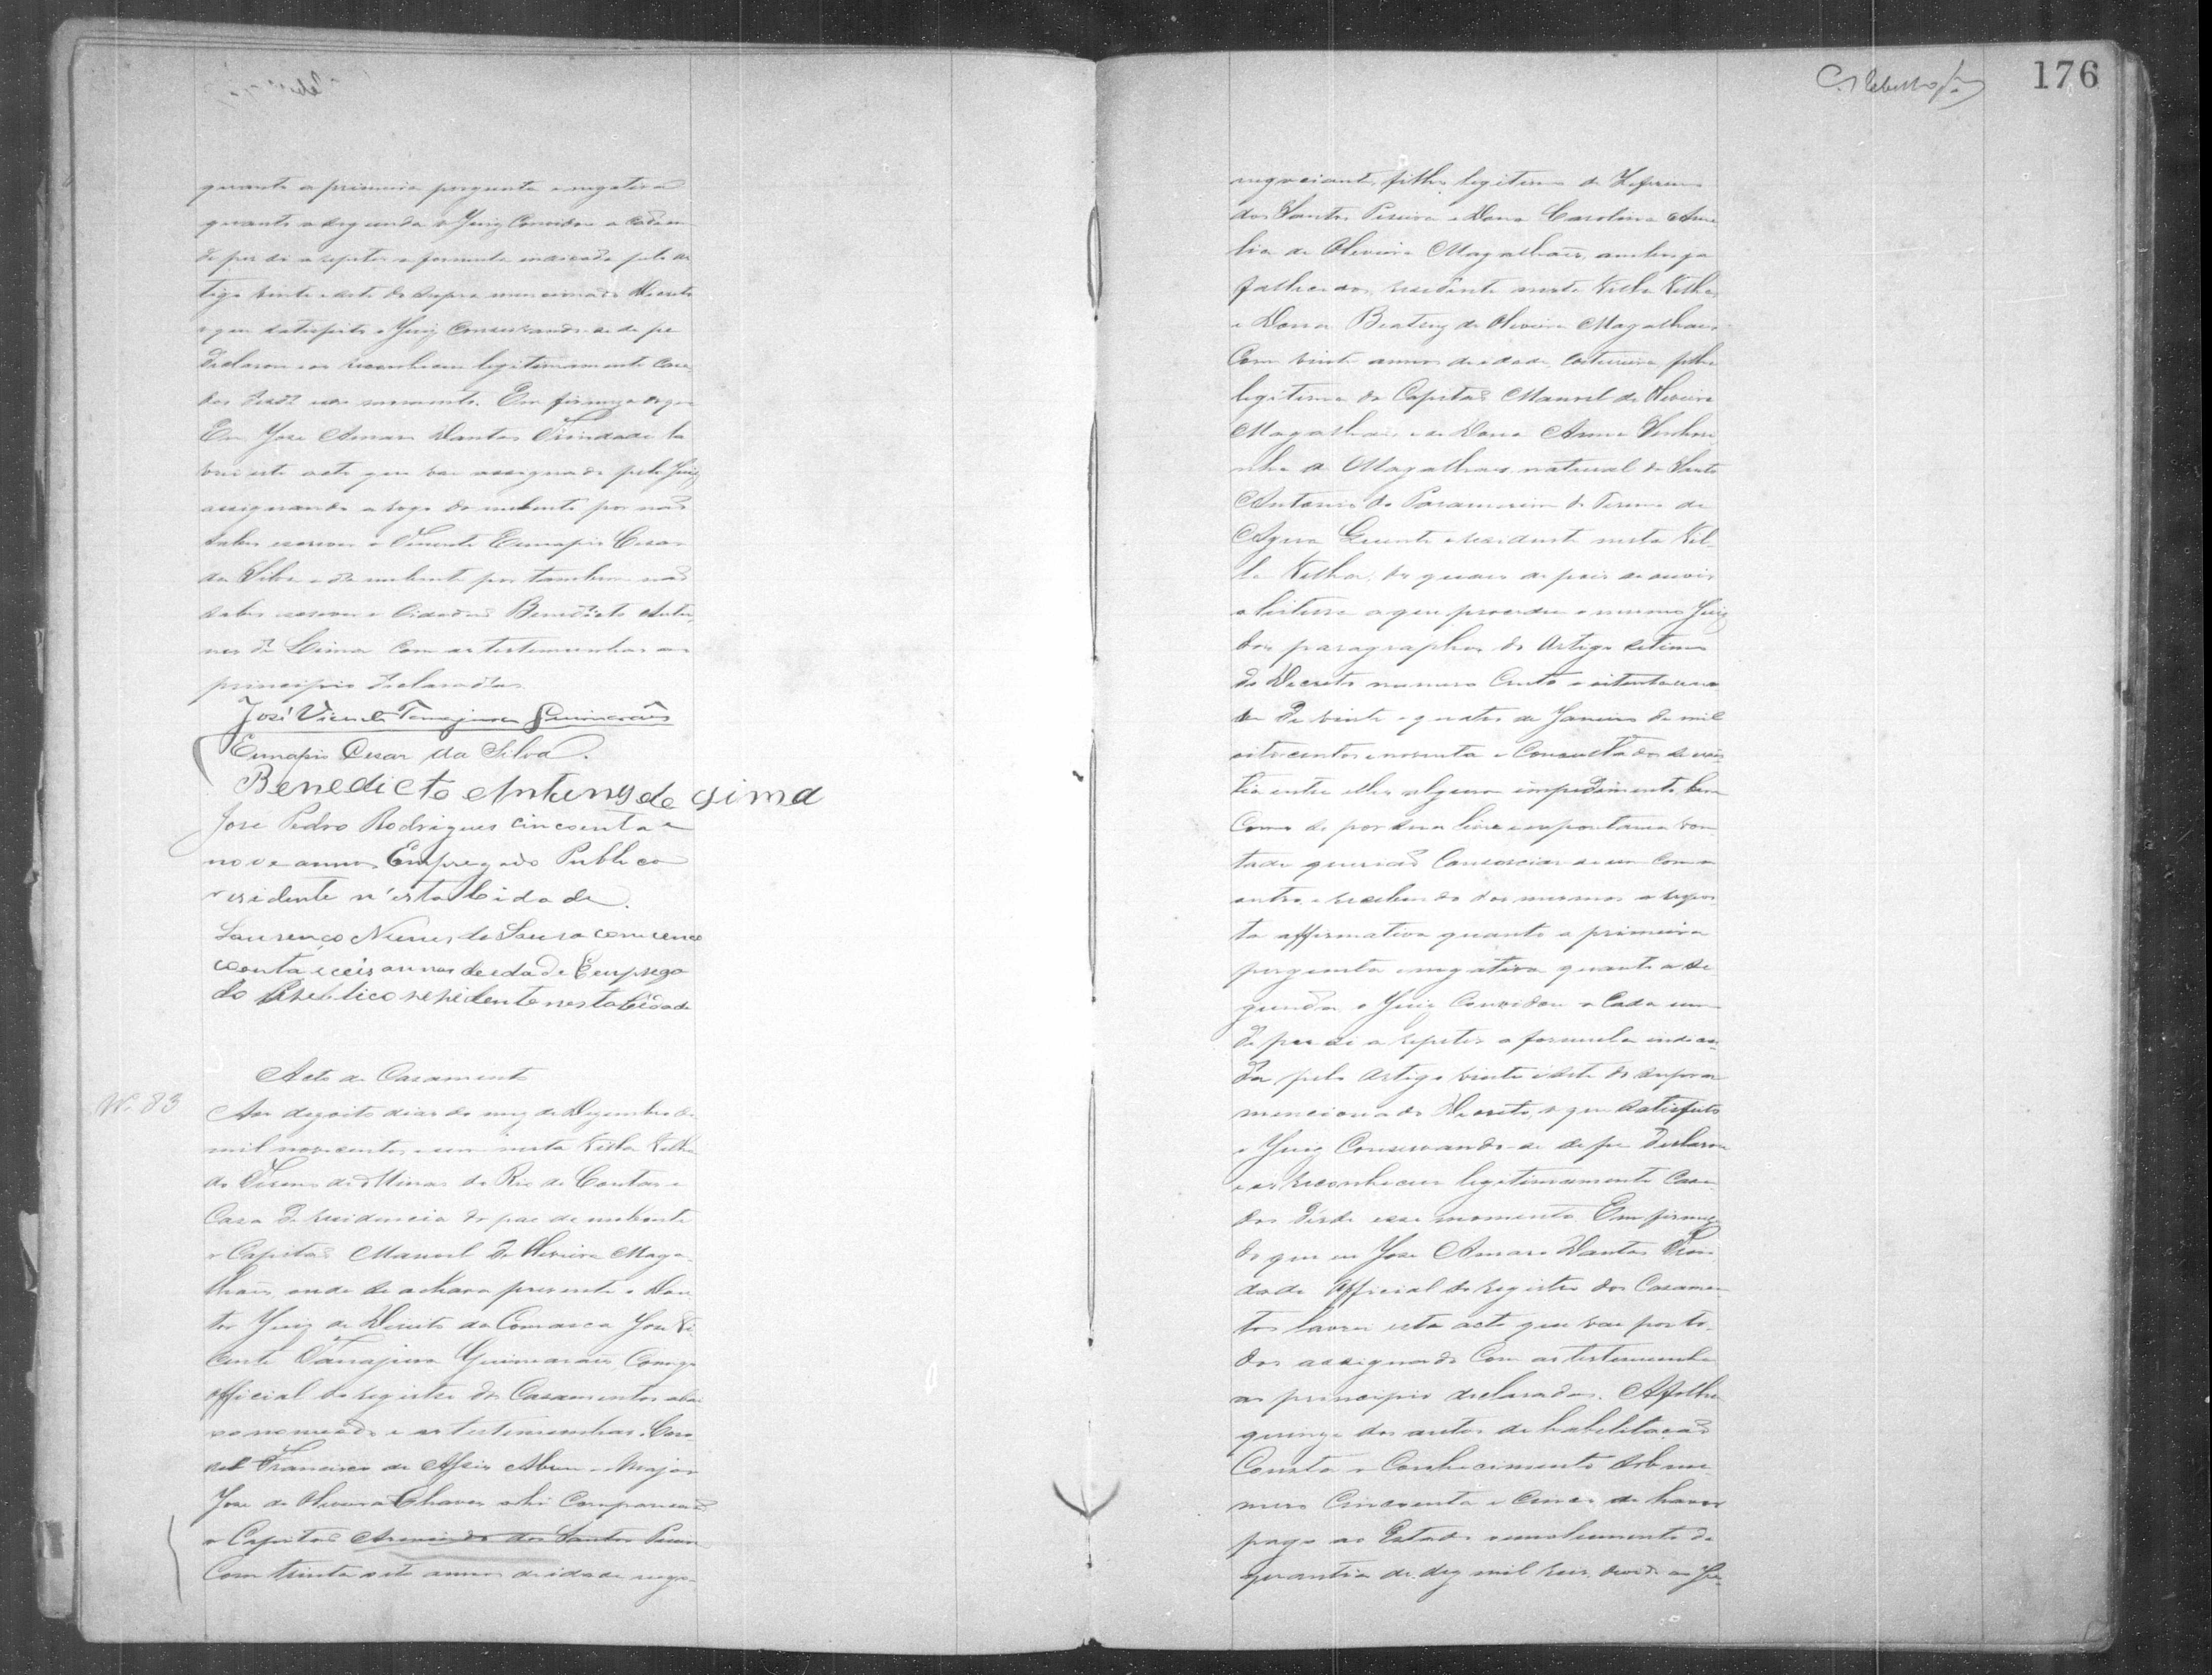 quanto a primeira pergunta e negativa
quanto a segunda o Juiz Convidou a cada um
de per si a repetir a formula indicada pelo ar
tigo vinte e sete do supra mencionado Decreto
o que satisfeito o Juiz Conservando-se de pé
declarou e os reconheceu legitimamente Casa
dos desde esse momento. Em firmeza do que
Eu José Amaro Dantas Trindade la
vrei este acto que vae assignado pelo Juiz
assignando a rogo do nubente por não
saber escrever o Tenente Eunapio Cesar
da Silva e da nubente por tambem não
saber escrever o Cidadão Benedicto Antu
nes de Lima com as testemunhas ao
principio declaradas.
José Vicente Tanajura Guimarães
Eunapio Cesar da Silva.
Benedicto Antunes de Lima
José Pedro Rodrigues cincoenta e
nove annos Empregado Publico
residente n'esta Cidade.
Lourenço Nunes de Souza com cinco
coenta e ceis annos de edade Emprega
do Publico residente nesta Cidade
Acto de Casamento
Nº 83
Aos dezoito dias do mez de Dezembro de
mil novecentos e um nesta Villa Velha
do Termo de Minas do Rio de Contas e
Casa de residencia do pae da nubente
o Capitão Manoel de Oliveira Maga-
lhães onde se achava presente o Dou
tor Juiz de Direito da Comarca José Vi
cente Tanajura Guimarães Comigo
official do registro dos Casamentos abai
xo nomeado e as testemunhas. Coro-
nel Francisco de Assis Abreu e Major
José de Oliveira Chaves ahi Compareceo
o Capitão dos Santos Pereira
Com trinta e oito annos de idade nego-
176
negociante, filho legitimo de
dos Santos Pereira e Dona Carolina Ame
lia de Oliveira Magalhães, ambos já
fallecidos, residente nesta Villa Velha
e Dona Beatriz de Oliveira Magalhães
Com vinte annos de idade, costureira filha
legitima do Capitão Manoel de Oliveira
Magalhães e de Dona Anna
nha de Magalhães natural de Santo
Antonio do Paramirim do Termo de
Agua Quente e residente nesta Vil-
la Velha; os quaes depois de ouvir
a leitura a que procedeu o mesmo Juiz
dos paragraphos do Artigo setimo
do Decreto numero Cento e oitenta e um
de vinte e quatro de Janeiro de mil
oitocentos e noventa e Consultados se exis
tia entre elles algum impedimento bem
Como se por sua livre e espontanea von
tade querião Consorciar-se um com o
outro, e recebendo dos mesmos a respos
ta affirmativa quanto a primeira
pergunta e negativa quanto a se
gunda, o Juiz Convidou a Cada um
de per si a repetir a formula indica-
da pelo Artigo vinte e sete do supra
mencionado Decreto, o que satisfeito
o Juiz Conservando-se de pé declarou
e os reconheceu legitimamente Casa
dos desde esse momento. Em firmeza
do que eu José Amaro Dantas Trin
dade Official do registro dos Casamen
tos lavrei este acto que vae por to-
dos assignado Com as testemunhas
ao principio declaradas. A folhas
quinze dos autos de habilitação
Consta o Conhecimento sob nu-
mero Cincoenta e Cinco de haver
pago ao Estado emolumento da
quantia de dez mil reis, devido ao